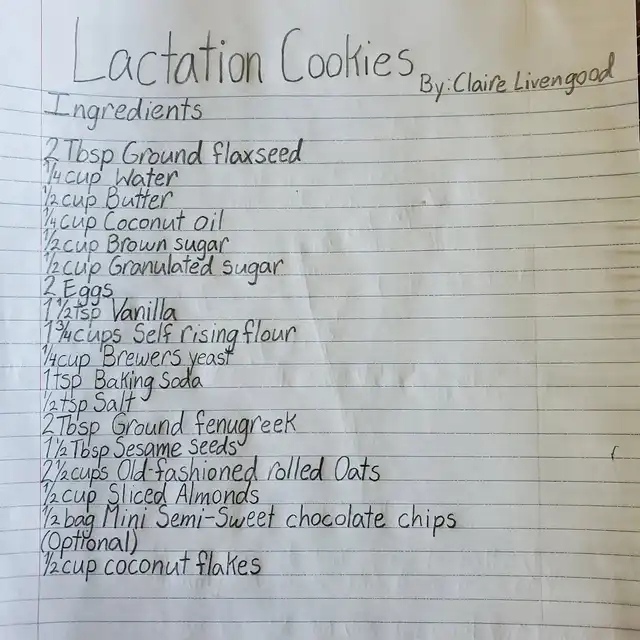 Lactation Cookies
By: Claire Livengood
Ingredients
2 Tbsp Ground flaxseed
1/4 cup Water
1/2 cup Butter
1/4 cup Coconut oil
1/2 cup Brown sugar
1/2 cup Granulated sugar
2 Eggs
1 1/2 tsp Vanilla
1 3/4 cups Self rising flour
1/4 cup Brewers yeast
1 tsp Baking Soda
1/2 tsp Salt
2 Tbsp Ground fenugreek
1 1/2 Tbsp Sesame seeds
2 1/2 cups Old-fashioned rolled Oats
1/2 cup Sliced Almonds
1/2 bag Mini Semi-Sweet chocolate chips
(Optional)
1/2 cup coconut flakes